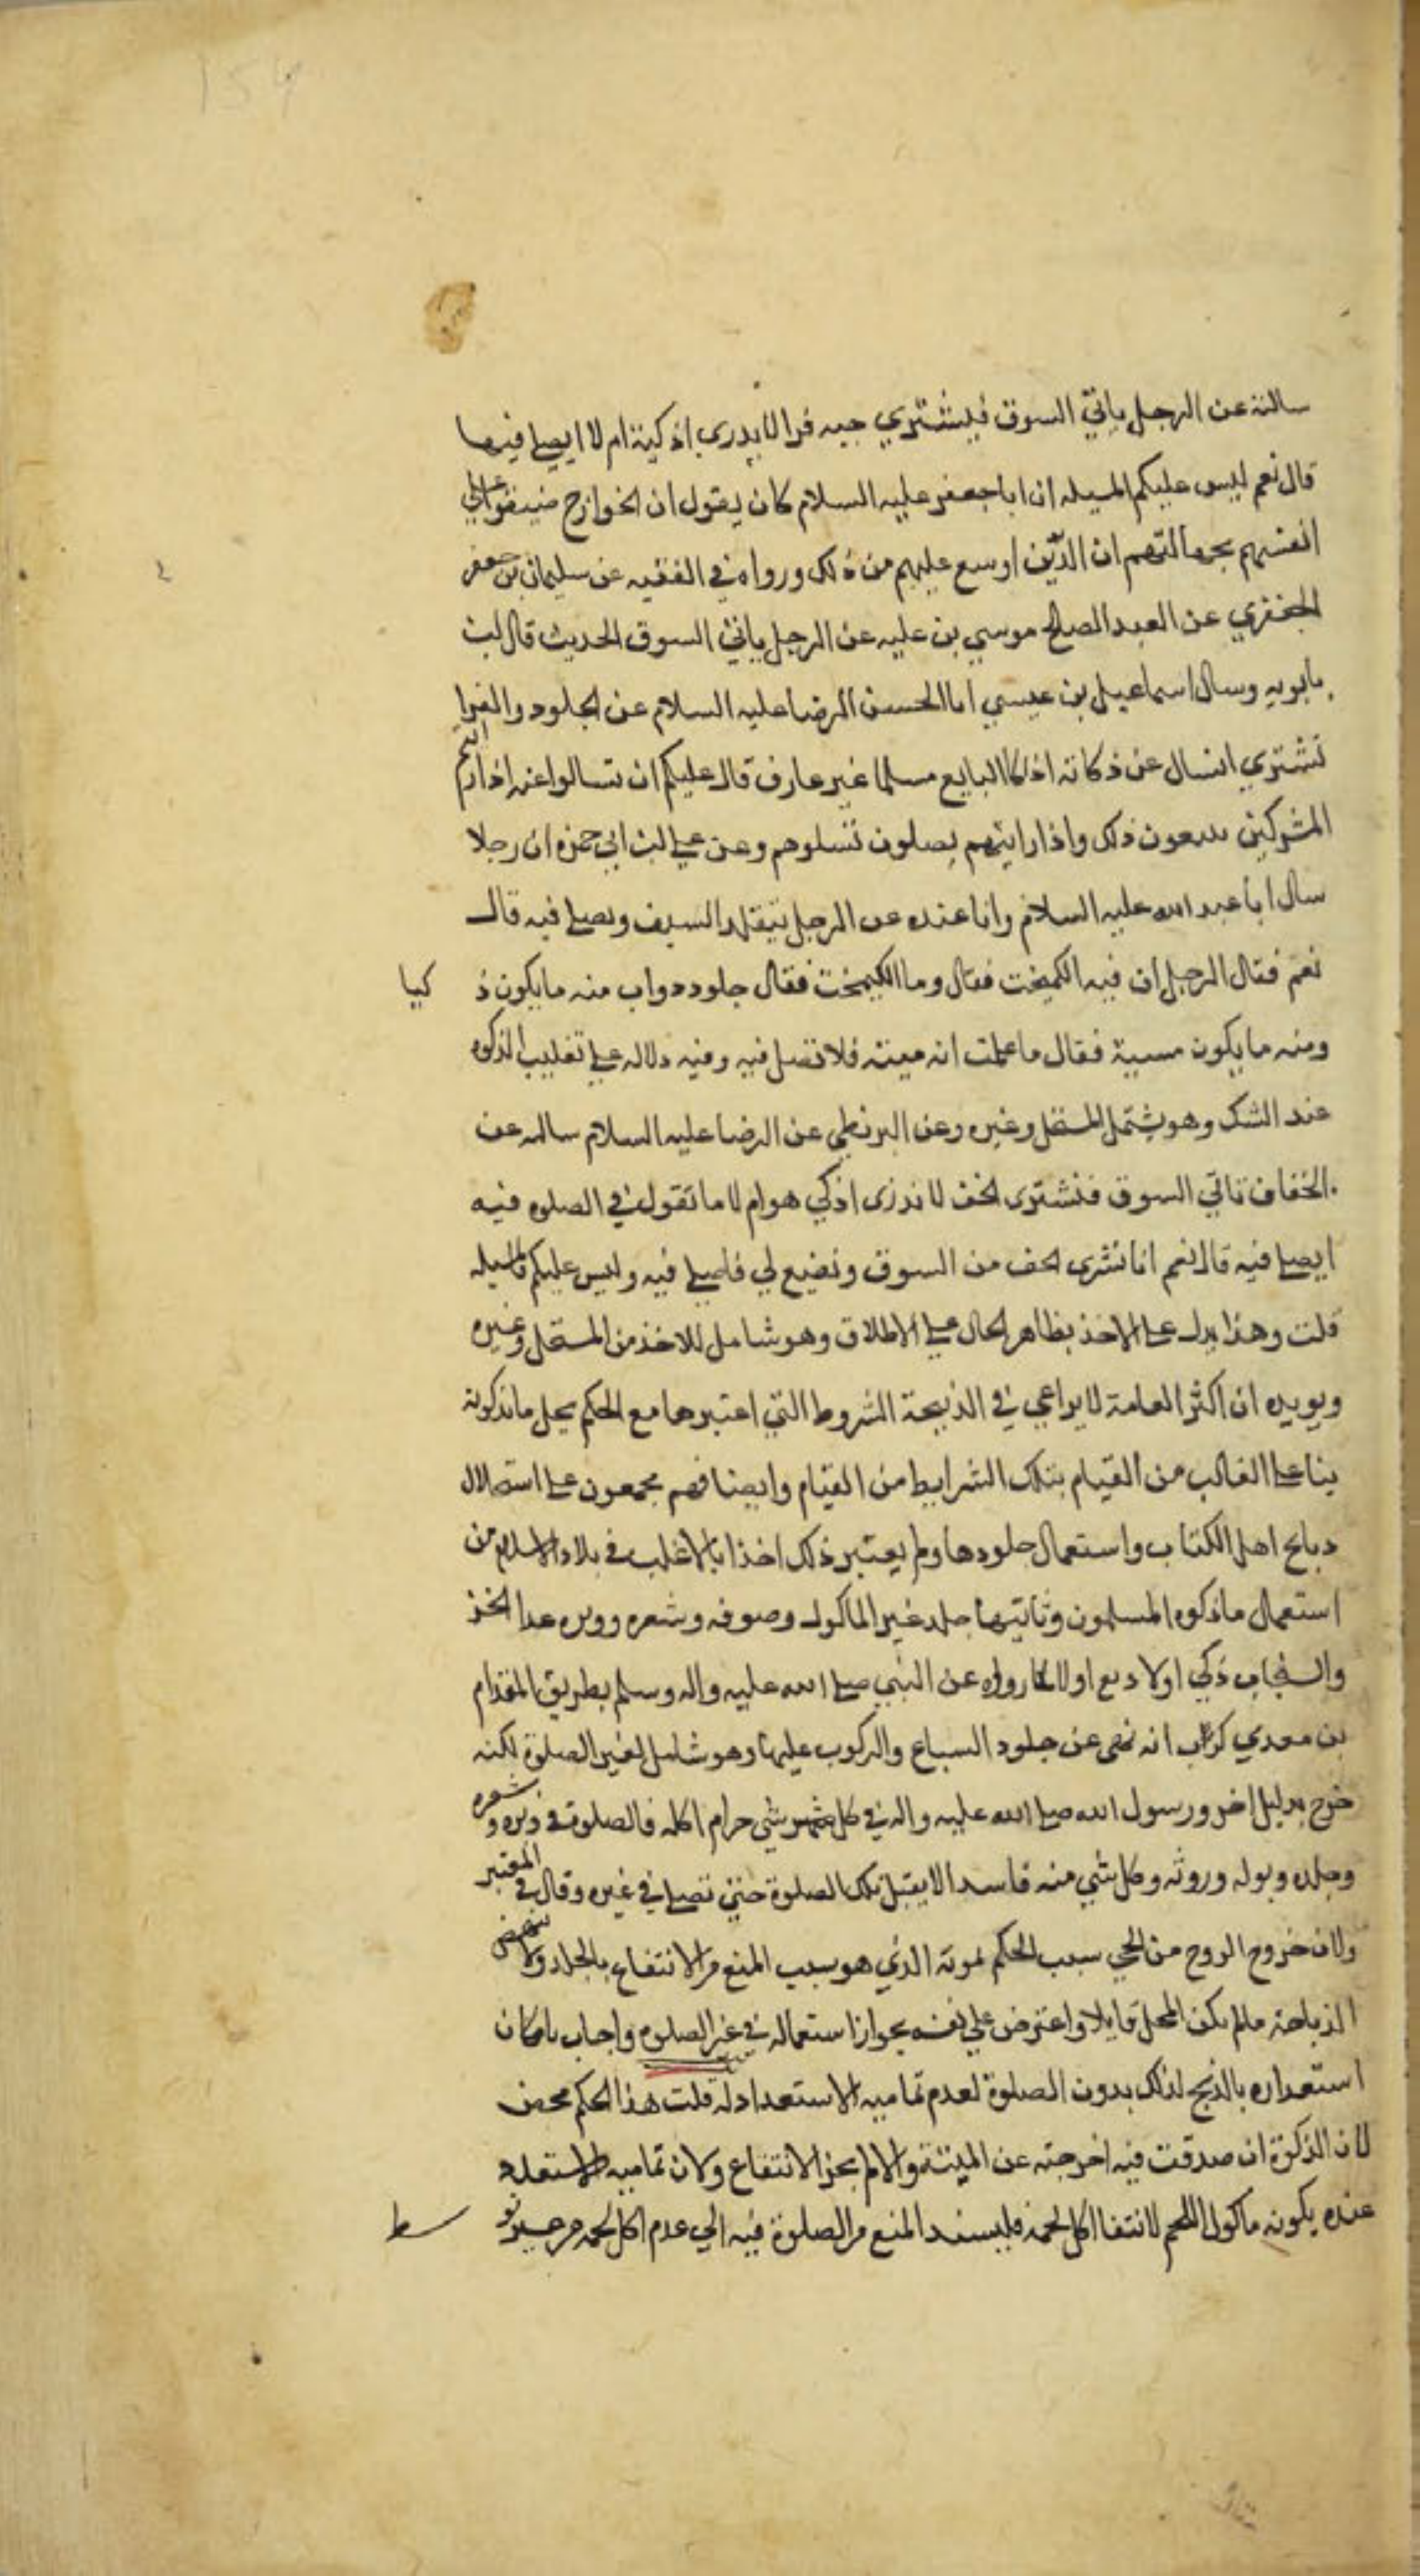 سالته عن الرجل ياتي السوق فيشتري جبه فرا لا يدري اذكية ام لا ايصلي فيها
قال نعم ليس عليكم المسيله ان ابا جعفر عليه السلام كان يقول ان الخوارج ضيقوا علي
انفسهم بجهالتهم ان الدين اوسع عليهم من ذلك ورواه في الفقيه عن سليمان بن جعفر
الجعفري عن العبد الصالح موسي بن عليه عن الرجل ياتي السوق الحديث قال ابن
بابويه وسال اسماعيل بن عيسي ابا الحسن الرضا عليه السلام عن الجلود والفرا
تشتري ايسال عن ذكاته اذا كا البايع مسلما غير عارف قال عليكم ان تسالوا عنه اذا رايتم
المشركين يبيعون ذلك واذا رايتهم يصلون تسلوهم وعن علي بن ابي حمزه ان رجلا
سال ابا عبد الله عليه السلام وانا عنده عن الرجل يتقلد السيف ويصلي فيه قال
نعم فقال الرجل ان فيه الكمخت فقال وما الكيمخت فقال جلود دواب منه ما يكون ذ كيا
ومنه ما يكون ميتة فقال ما علمت انه ميتته فلا تصل فيه وفيه دلاله علي تغليب الذكوه
عند الشك وهو يشمل المستحل وغيره وعن البزنطي عن الرضا عليه السلام ساله عن
الخفاف ناتي السوق فنشتري الخف لا ندري اذكي هو ام لا ما تقول في الصلوه فيه
ايصلي فيه قال نعم انا نشري الخف من السوق وتصنع لي فاصلي فيه وليس عليكم المسيله
قلت وهذا يدل علي الاخذ بظاهر الحال علي الاطلاق وهو شامل للاخذ من المستحل وغيره
ويويده ان اكثر العامة لا يراعي في الذبيحة الشروط التي اعتبرها مع الحكم بحل ما يذكونه
بنا علي الغالب من القيام بتلك الشرايط من القيام وايضا فهم مجمعون علي استحلال
ذبايح اهل الكتاب واستعمال جلودها ولم يعتبر ذلك اخذا بالاغلب في بلاد الاسلام من
استعمال ما ذكوه المسلمون وثانيها جلد غير الماكول وصوفه وشعره ووبره عدا الخز
والسنجاب ذكي اولا دبغ اولا لما رواه عن النبي صلي الله عليه واله وسلم بطريق المقدام
بن معدي كرب انه نهي عن جلود السباع والركوب عليها وهو شامل لغير الصلوة لكنه
خرج بدليل اخر ورسول الله صلي الله عليه واله في كل شي حرام اكله فالصلوة في وبره وشعره
وجلده وبوله وروثه وكل شي منه فاسد لا يقبل تلك الصلوة حتي تصلي في غيره وقال في المعتبر
ولان خروج الروح من الحي سبب الحكم بموته الذي هو سبب المنع من الانتفاع بالجلد ولا تنهض
الذباحة ما لم يكن المحل قابلا واعترض علي نفسه بجواز استعماله في غير الصلوه واجاب بامكان
استعداده بالذبح لذلك بدون الصلوة لعدم تماميه الاستعداد له قلت هذا الحكم محض
لان الذكوة ان صدقت فيه اخرجته عن الميتة والا لم يجز الانتفاع ولان تماميه الاستعداد
عنده يكونه ماكول اللحم لانتفا اكل لحمه فليسند المنع من الصلوة فيه الي عدم اكل لحمه من غير تو سط